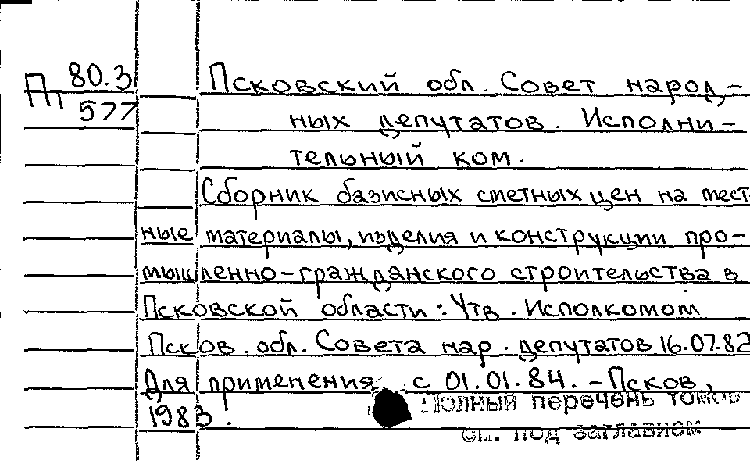 Пт 80.3 Псковский обл. Совет народ-
577
ных депутатов. Исполни-
тельный ком.
Сборник базисных сметных цен на мест-
ные материалы, изделия и конструкции про-
мышленно-гражданского строительства в
Псковской области: Утв. Исполкомом
Псков. обл. Совета нар. депутатов 16.07.82
Для применения с 01.01.84. - Псков,
1983.
Полный перечень томов
см. под заглавием